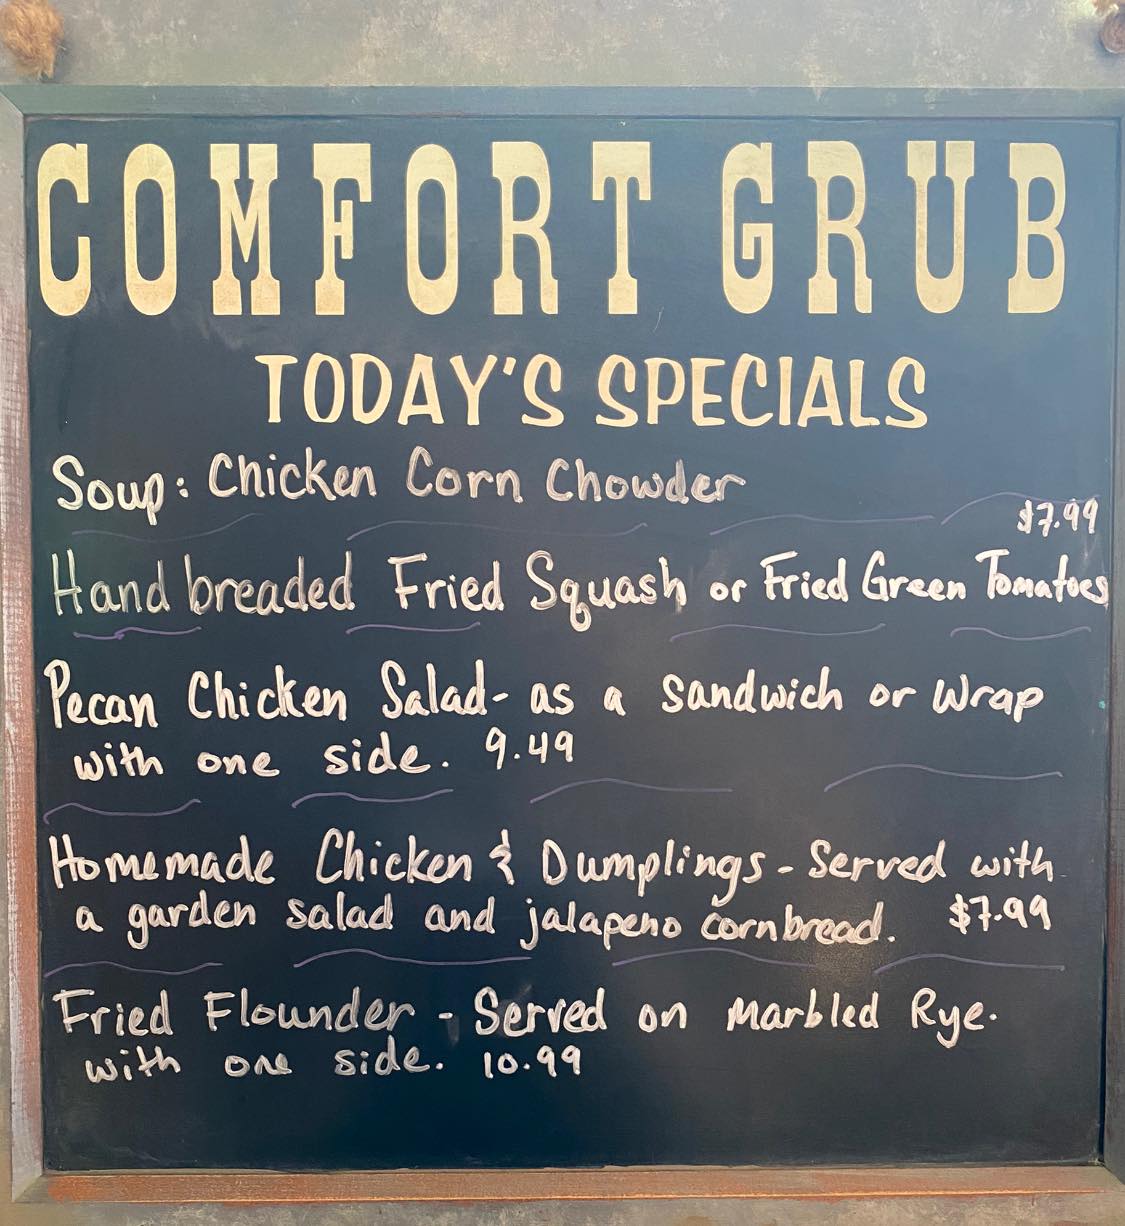 COMFORT GRUB
TODAY'S SPECIALS
Soup: Chicken Corn Chowder
$7.99
Hand breaded Fried Squash or Fried Green Tomatoes
Pecan Chicken Salad - as a sandwich or wrap
with one side. 9.49
Homemade Chicken & Dumplings - Served with
a garden salad and jalapeno cornbread. $7.99
Fried Flounder - Served on Marbled Rye.
with one side. 10.99